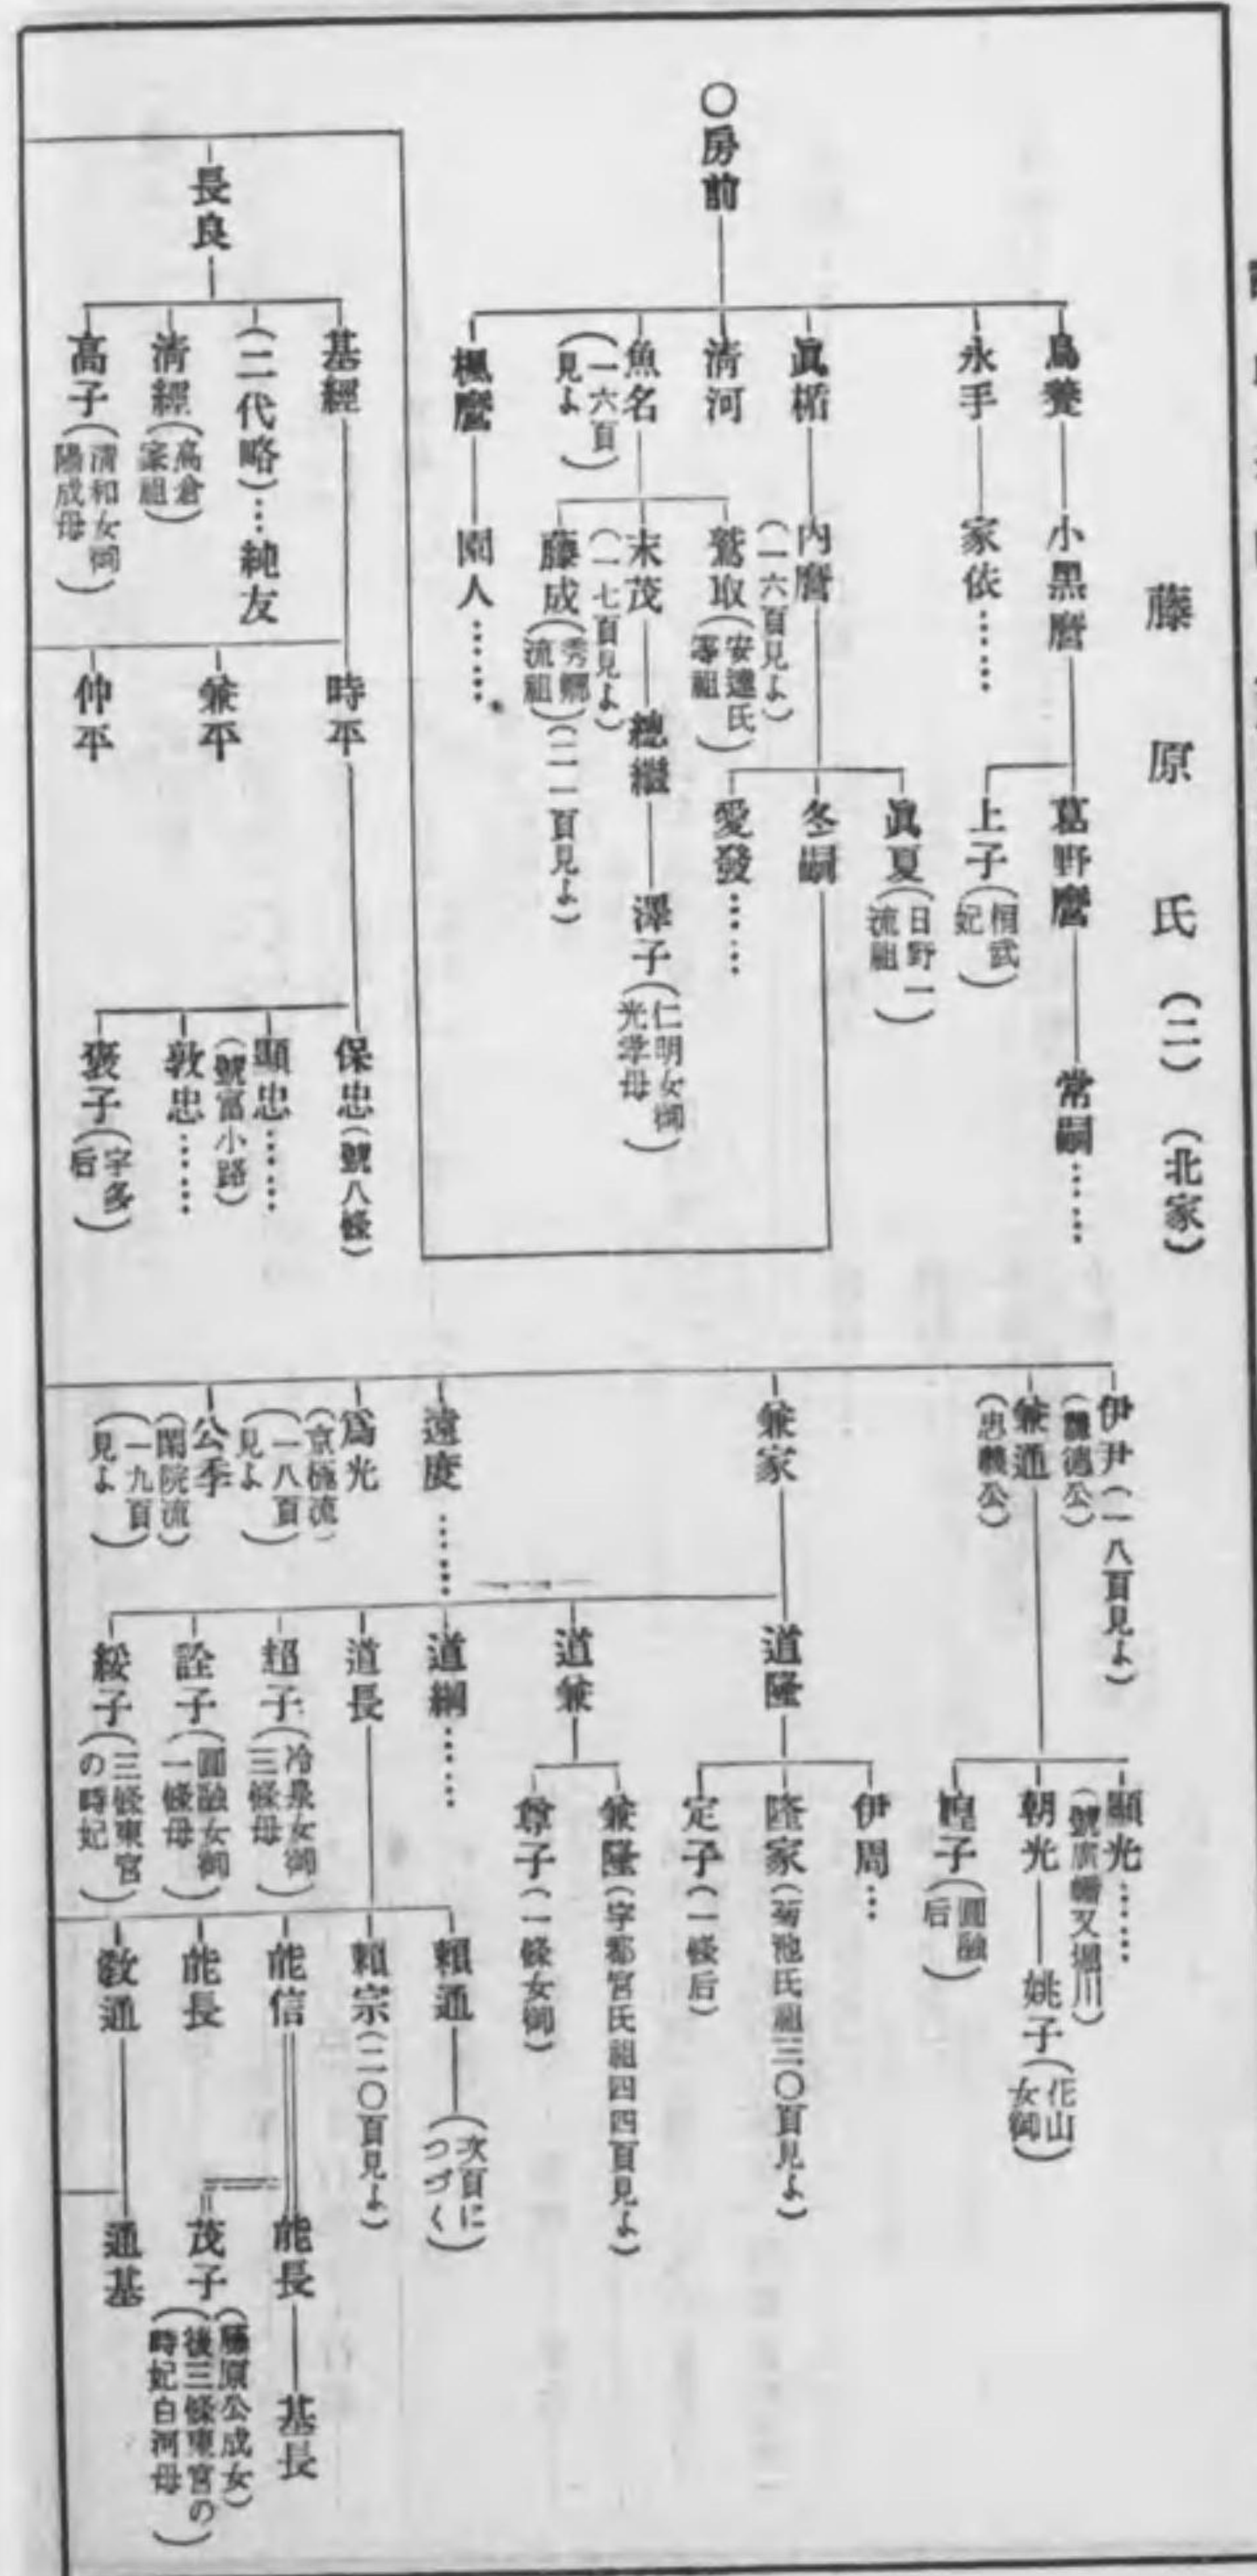 藤原氏(二)(北家)
〇房前
鳥養
小黑麿
葛野麿
常嗣……
上子(桓武妃)
永手
家依……
眞楯
內麿
(一六頁見よ)
眞夏(日野一流祖)
冬嗣
愛發……
淸河
魚名
(一六頁見よ)
鷲取(安達氏等祖)
末茂
(一七頁見よ)
總繼
澤子(仁明女御光孝母)
藤成(秀鄕流祖)(二一頁見よ)
楓麿
園人……
長良
基經
(二代略)…純友
淸經(高倉家祖)
高子(淸和女御陽成母)
時平
兼平
仲平
保忠(號八條)
顯忠……
(號富小路)
敦忠……
褒子(宇多后)
伊尹(一八頁見よ)
(謙德公)
兼通
(忠義公)
顯光……
(號廣幡又堀川)
朝光
姚子(花山女御)
媓子(圓融后)
兼家
道隆
伊周…
隆家(菊池氏祖三〇頁見よ)
定子(一條后)
道兼
兼隆(宇都宮氏祖四四頁見よ)
尊子(一條女御)
道綱……
道長
超子(冷泉女御三條母)
詮子(圓融女御一條母)
綏子(三條東宮の時妃)
遠度……
爲光
(京極流)
(一八頁見よ)
公季
(閑院流)
(一九頁見よ)
賴通
(次頁につづく)
賴宗(二〇頁見よ)
能信
能長
基長
茂子
(藤原公成女)
(後三條東宮の時妃白河母)
能長
敎通
通基